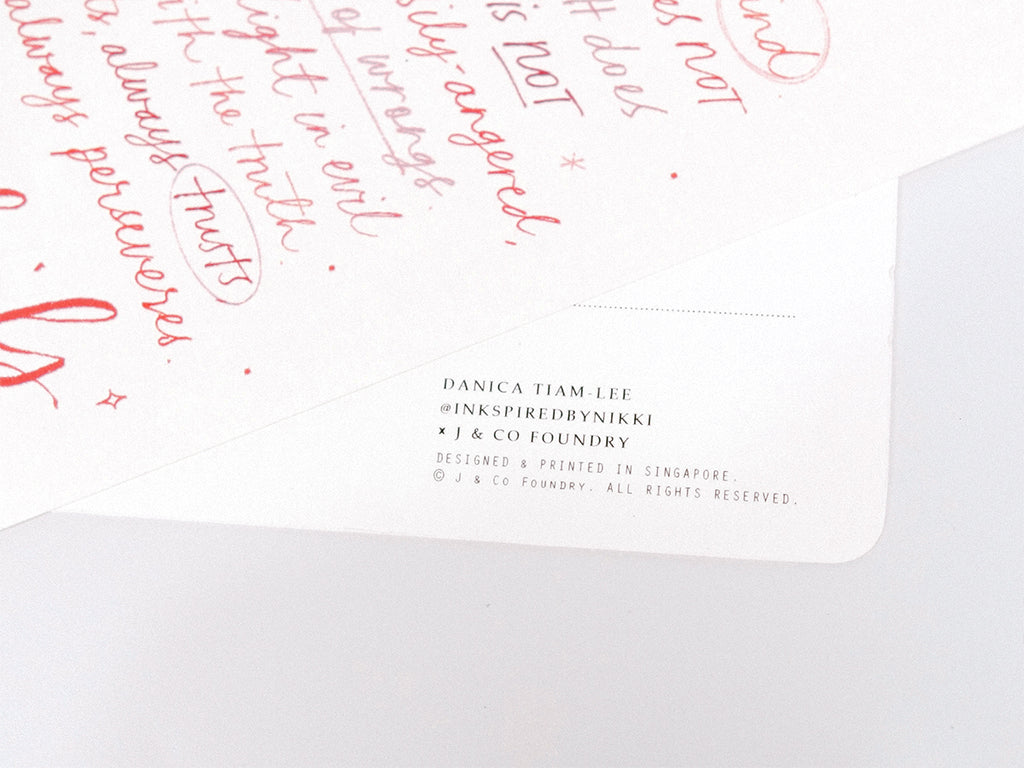 ind
es not
It does
is NOT
sily-angered,
of wrongs.
light in evil
ith the truth.
ts, always trusts
always perseveres.
DANICA TIAM-LEE
@INKSPIREDBYNIKKI
x J & CO FOUNDRY
DESIGNED & PRINTED IN SINGAPORE.
© J & CO FOUNDRY. ALL RIGHTS RESERVED.